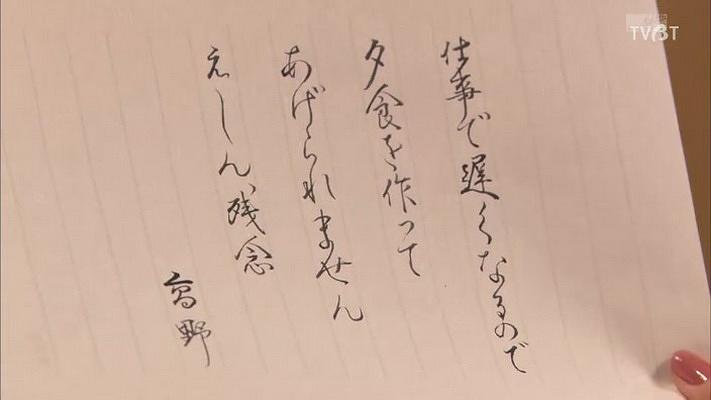 仕事で遅くなるので
夕食を作って
あげられません
えーん、残念
高野